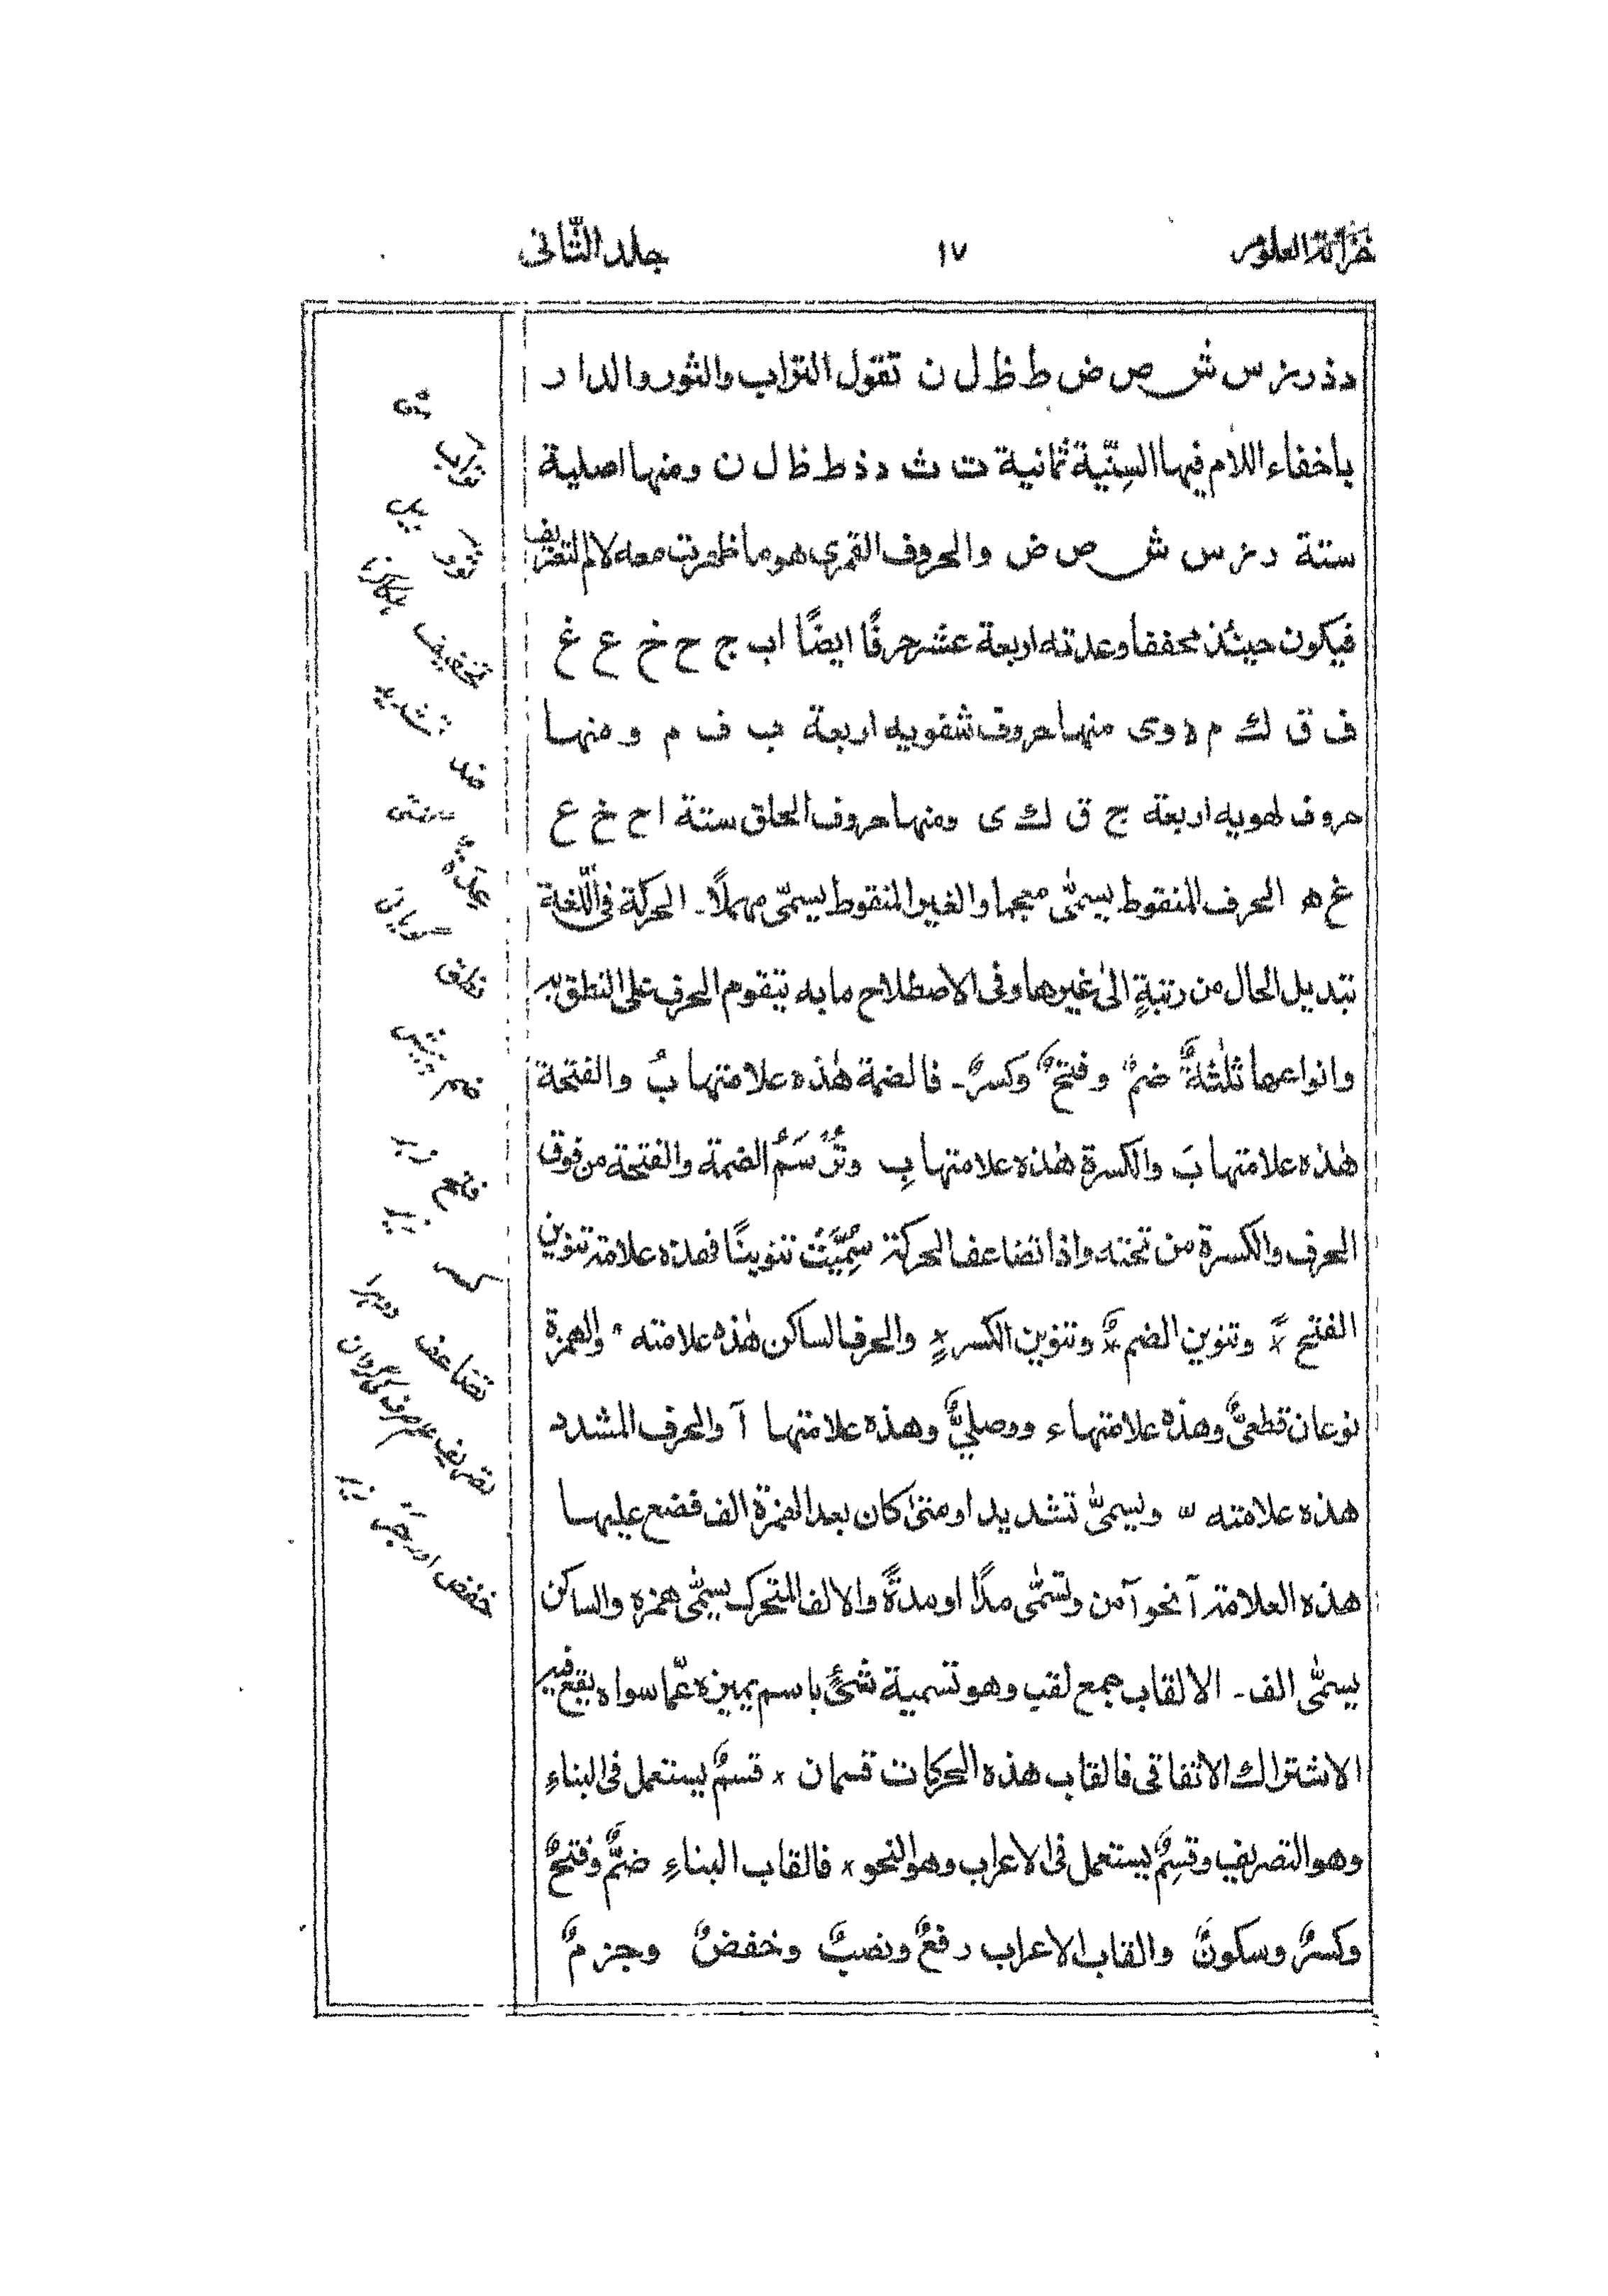 خزانة العلوم ١٧ جلد الثّانى
د ذ ر ز س ش ص ض ط ظ ل ن تقول التراب والثور والدار
باخفاء اللام فيها السِنّية ثمانية ت ث د ذ ط ظ ل ن ومنها اصلية
ستة ر ز س ش ص ض والحروف القمرى هو ما ظهرت معه لام التعريف
فيكون حينئذ مخففا وعدته اربعة عشر حرفًا ايضًا ا ب ج ح خ ع غ
ف ق ك م ه و ى منها حروف شفويه اربعة ب ف م و منها
حروف لهويه اربعة ج ق ك ى ومنها حروف الحلق ستة ا ح خ ع
غ ه الحرف المنقوط يسمّٰى معجما والغير المنقوط يسمّى مهملًا۔ الحركة فى اللّغة
تبديل الحال من رتبةٍ الىٰ غيرها وفى الاصطلاح ما به يتقوم الحرف على النطق به
وانواعها ثلٰثةٌ ضمٌ وفتحٌ وكسرٌ۔ فالضمة هٰذه علامتها بُ والفتحة
هٰذه علامتها بَ والكسرة هٰذه علامتها بِ وتُرْسَمُ الضمة والفتحة من فوق
الحرف والكسرة من تحته واذا تضاعف الحركة سُمِّيَتْ تنوينًا فهذه علامة تنوين
الفتح ×ً وتنوين الضم ×ٌ وتنوين الكسر ×ٍ والحرف الساكن هٰذه علامته ْ والهمزة
نوعان قطعىٌّ وهذه علامتها ء ووصلىٌّ وهذه علامتها آ والحرف المشدد
هذه علامته ّ ويسمّٰى تشديدا ومتىٰ كان بعد الهمزة الف فضع عليها
هذه العلامة آ نحو آمن وتسمّٰى مدًا او مدةً والالف المتحرك يسمّٰى همزه والساكن
يسمّٰى الف۔ الالقاب جمع لقب وهو تسمية شئٍ باسم يميزه عمّا سواه يقع فيه
الاشتراك الاتفاقى فالقاب هذه الحركات قسمان × قسمٌ يستعمل فى البناءِ
وهو التصريف وقسِمٌ يستعمل فى الاعراب وهو النحو × فالقاب البناءِ ضمٌّ وفتحٌ
وكسرٌ وسكونٌ والقاب الاعراب رفعٌ ونصبٌ وخفضٌ وجزمٌ
تراب
ثور
تخفيف
عدّة
نطق
ضم
فتح
كسر
تضاعف
تصريف
خفض اور جر